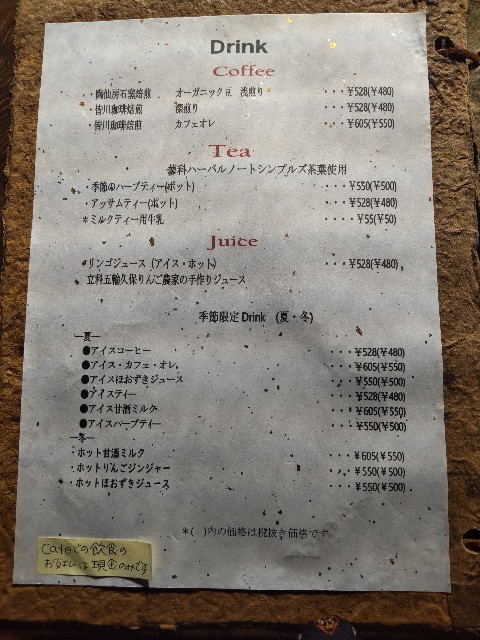 Drink
Coffee
・陶仙房石窯焙煎 オーガニック豆 浅煎り ・・・¥528(¥480)
・皆川珈琲焙煎 深煎り ・・・¥528(¥480)
・皆川珈琲焙煎 カフェオレ ・・・¥605(¥550)
Tea
蓼科ハーバルノートシンプルズ茶葉使用
・季節のハーブティー(ポット) ・・・¥550(¥500)
・アッサムティー(ポット) ・・・¥528(¥480)
＊ミルクティー用牛乳 ・・・¥55(¥50)
Juice
リンゴジュース (アイス・ホット) ・・・¥528(¥480)
立科五輪久保りんご農家の手作りジュース
季節限定 Drink (夏・冬)
―夏―
●アイスコーヒー ・・・¥528(¥480)
●アイス・カフェ・オレ ・・・¥605(¥550)
●アイスほおずきジュース ・・・¥550(¥500)
●アイスティー ・・・¥528(¥480)
●アイス甘酒ミルク ・・・¥605(¥550)
●アイスハーブティー ・・・¥550(¥500)
―冬―
・ホット甘酒ミルク ・・・¥605(¥550)
・ホットりんごジンジャー ・・・¥550(¥500)
・ホットほおずきジュース ・・・¥550(¥500)
＊( )内の価格は税抜き価格です
Cafeでの飲食の
お支払いは現金のみです